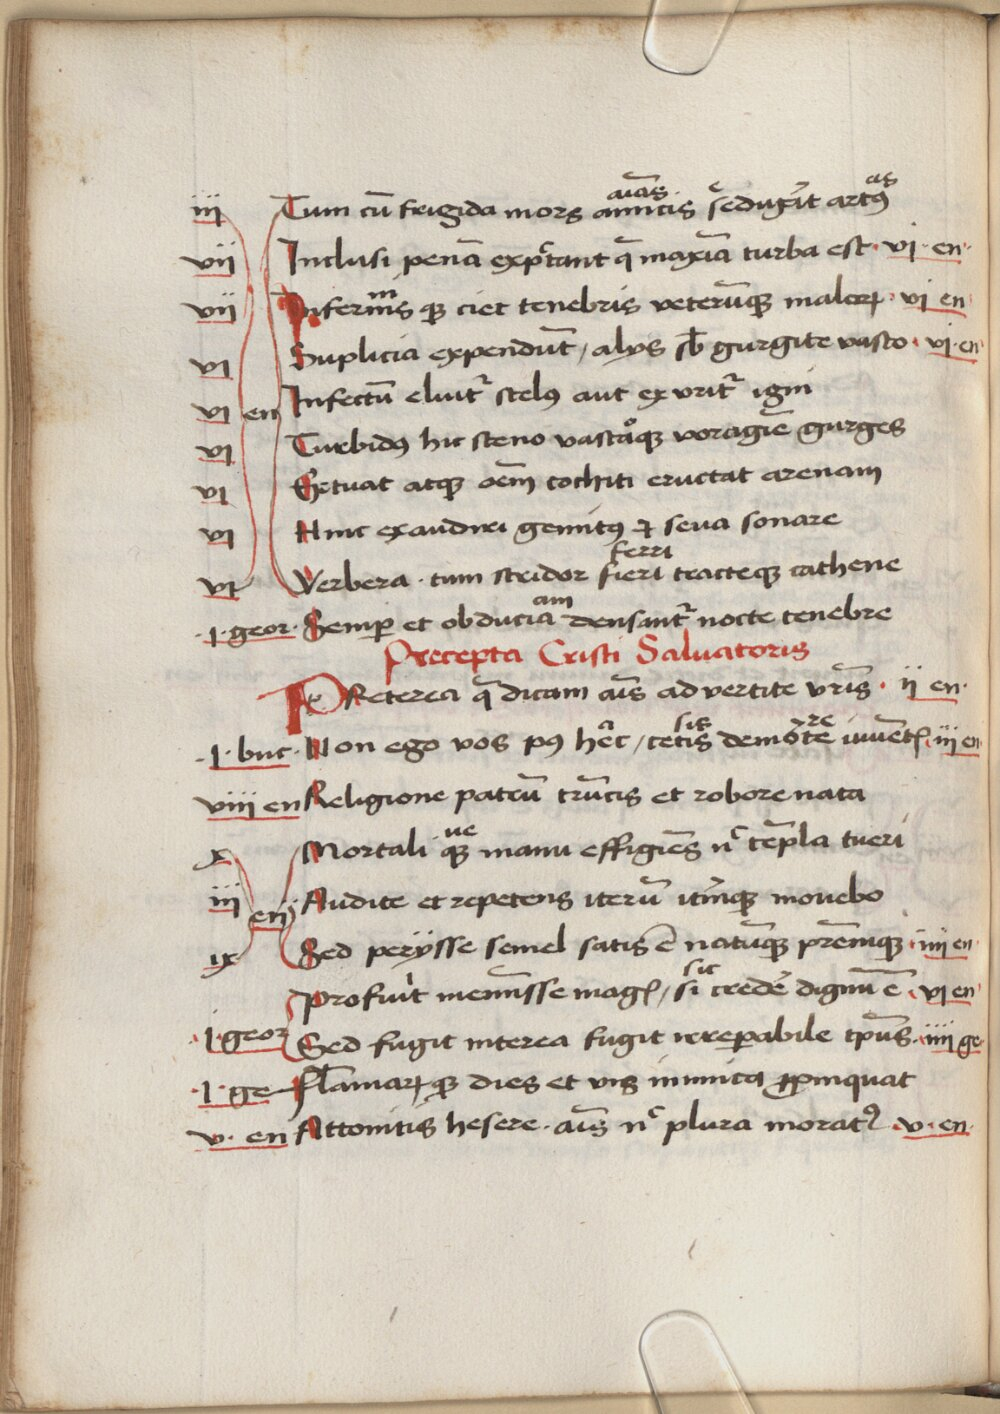 iii Tum cū frigida mors aīıcis aīas seduxīt artꝰ us
vii Inclusi penā expꝛtant q̄ maxīa turba est · vi · en ·
vii Infernis m qꝫ ciet tenebris veterūqꝫ maloꝝ · vi en
vi Suplicia expendūt / alys sb̄ gurgite vasto · vi · en
vi en Infectū eluit᷑ scelꝰ aut exurit᷑ igni
vi Turbidꝰ hic sceno vastaqꝫ voragīe gurges
vi Estuat atqꝫ oēm cochiti eructat arenam
vi Hinc exaudiri gemitꝰ ⁊ seva sonare
vi Verbera · tum stridor fieri ferri tracteqꝫ cathene
· I · geor · Semꝑ et obducia am densant᷑ nocte tenebre
Precepta Cristi Salvatoris
PReterea q̄ dicam aīs advertite vr̄is · ii en ·
· I · buc · Non ego vos pꝰ hc̄ / cetis sis demōte re iuvent · iii en
viii en Religione patrū trūcis et robore nata
x Mortali qꝫ ue manu effigies nͨ tēpla tueri
iii en Audite et repetens iterū itm̄qꝫ movebo
ix Sed perijsse semel satis ē natūqꝫ prēmqꝫ · iiii en
Profuit meminisse magꝭ / si sic credē dignū ē · vi en
· I · geor Sed fugit interea fugit irreꝑabile tp̄us · iiii ge
· I · ge flāmaꝝ qꝫ dies et vis inimica ꝓpinquat
v · en Attonitis hesere · aīs nͨ plura morat᷑ · v · en ·